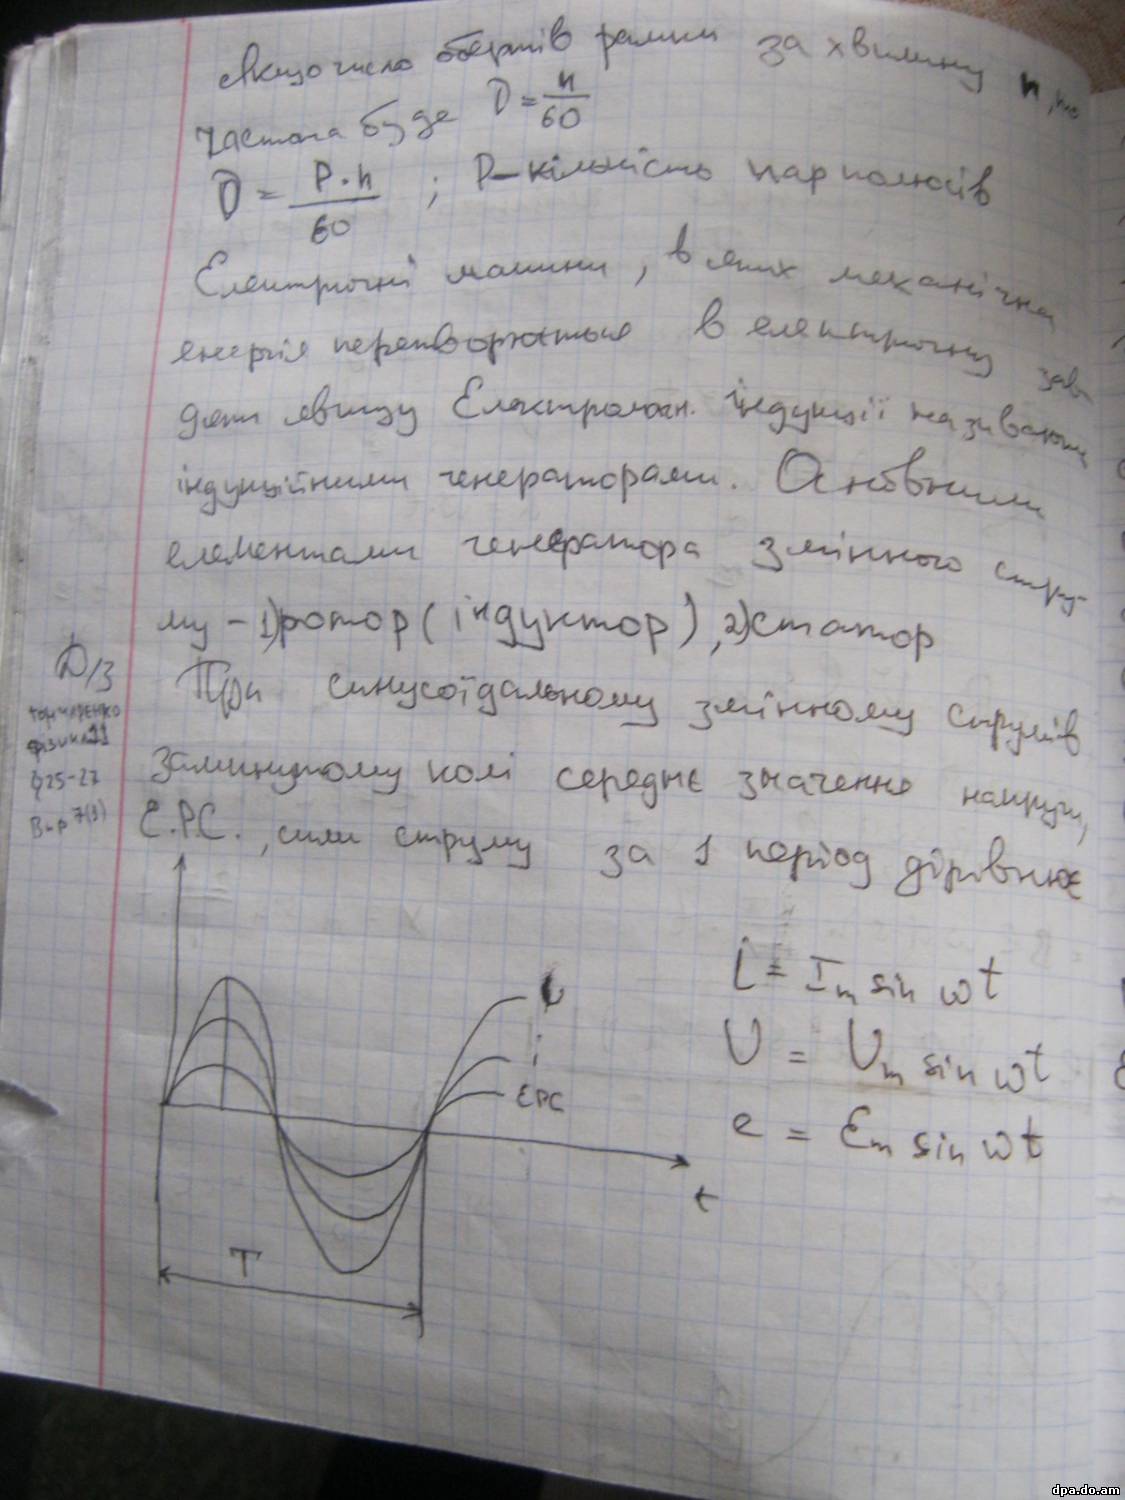 Якщо число обертів рамки за хвилину n, то
частота буде ν = n/60
ν = P·n/60 ; P – кількість пар полюсів
Електричні машини, в яких механічна
енергія перетворюється в електричну зав-
дяки явищу Електромагн. індукції називають
індукційними генераторами. Основними
елементами генератора змінного стру-
му – 1) ротор (індуктор), 2) статор
При синусоїдальному змінному струмі в
замкнутому колі середнє значення напруги,
Е.Р.С., сили струму за 1 період дірівнює
Д/з
Гончаренко
фізика 11
§25-27
Впр 7(1)
U
i
ЕРС
t
T
i = Im sin ωt
U = Um sin ωt
e = Ɛm sin ωt
dpa.do.am